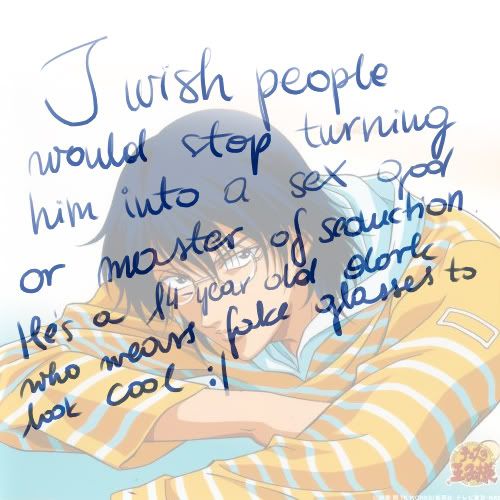 I wish people
would stop turning
him into a sex god
or master of seduction.
He's a 14 year old dork
who wears fake glasses to
look cool :/
テニスの
王子様